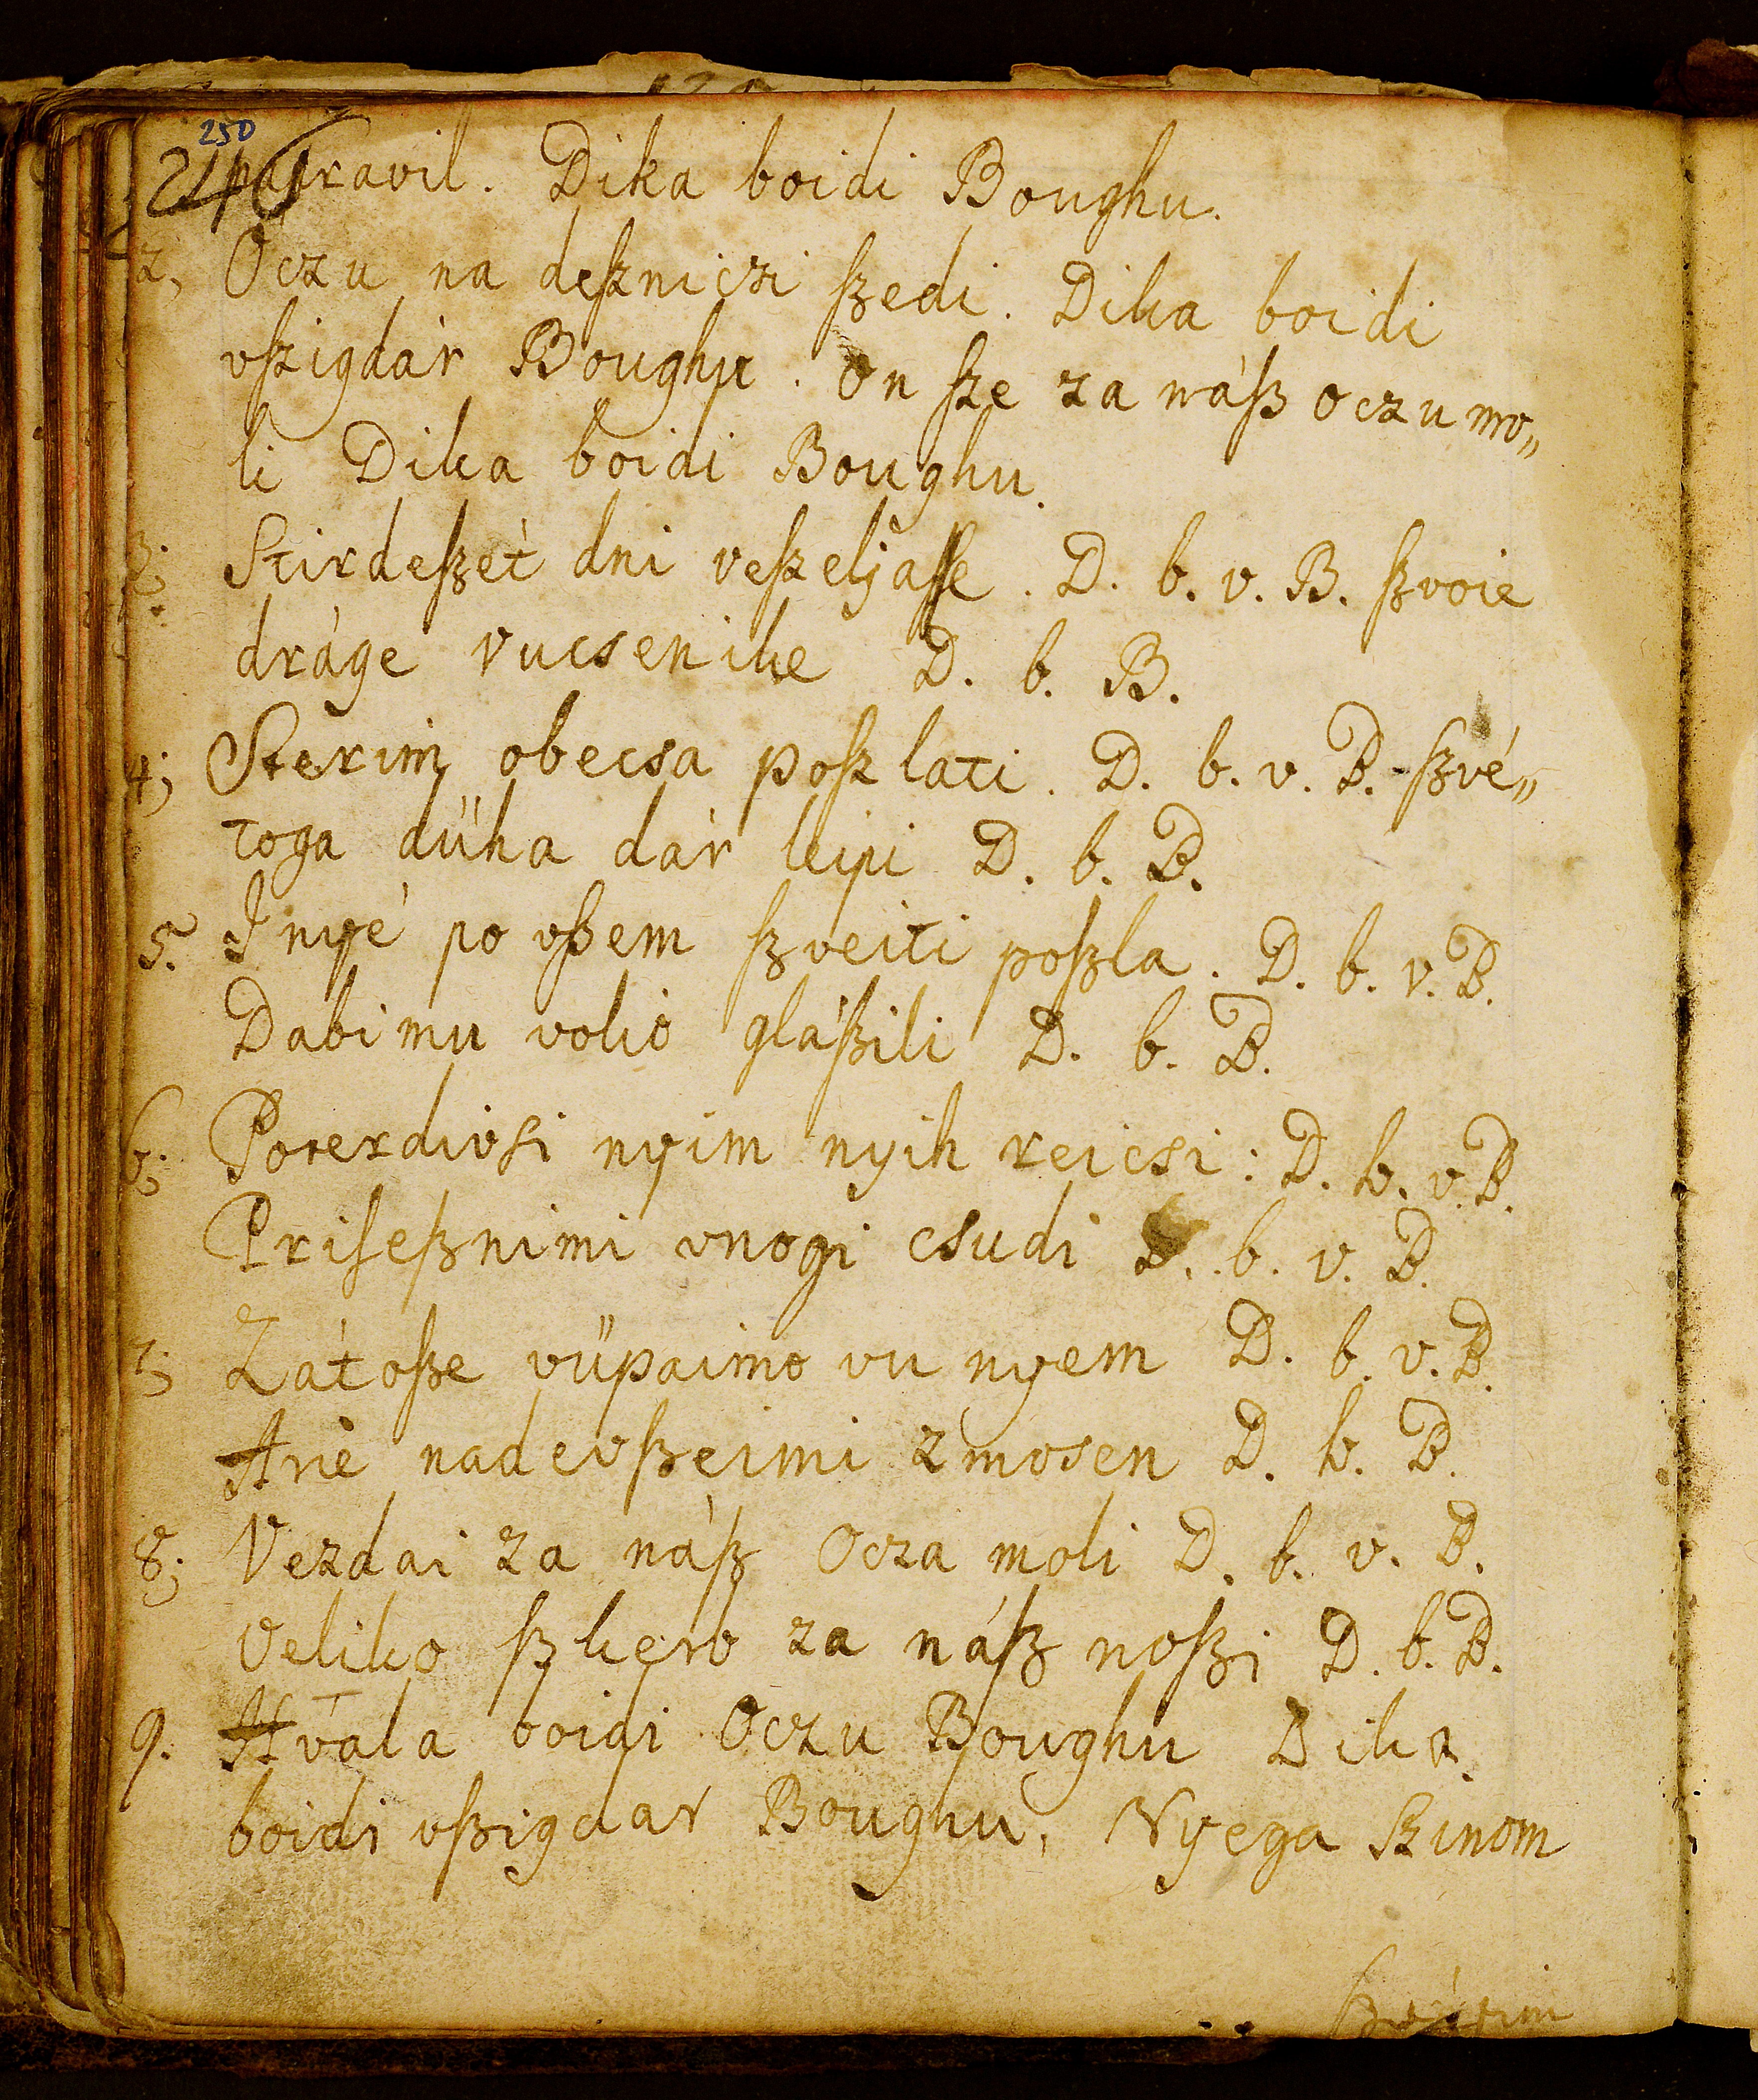 250
246
napravil. Dika boidi Boughu.
2, Oczu na deszniczi szedi. Dika boidi
vszigdár Boughu. On sze za nász Oczu mo„
li Dika boidi Boughu.
3; Stirdeszét dni veszeljasse. D. b. v. B. szvoie
dráge vucsenike D. b. B.
4; Sterim obecsa poszlati. D. b. v. B. szvé„
toga dűha dár leipi D. b. B.
5. I nyé po vszem szveiti poszla. D. b. v. B.
Dabi mu volió glászili D. b. B.
6; Poterdivsi nyim nyih reicsi: D. b. v. B.
Priseßnimi vnogi csudi D. b. v. B.
7; Zátosze vűpaimo vu nyem D. b. v. B.
Arie nadevszeimi zmosen D. b. B.
8; Vezdai za nász Ocza moli D. b. v. B.
Veliko szkerb za nász noszi D. b. B.
9. Hvála boidi Oczu Boughu Dika
boidi vszigdar Boughu, Nyega Szinom